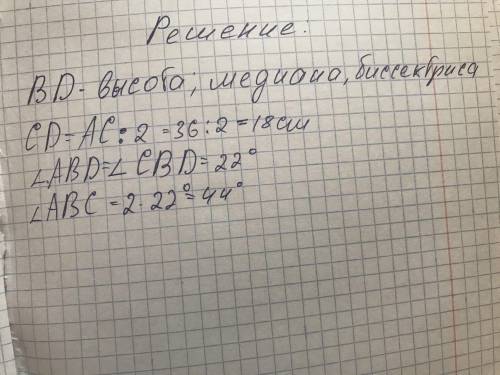 Решение:
BD - высота; медиана, биссектриса
CD = AC : 2 = 36 : 2 = 18 см
∠ABD = ∠CBD = 22°
∠ABC = 2 · 22° = 44°